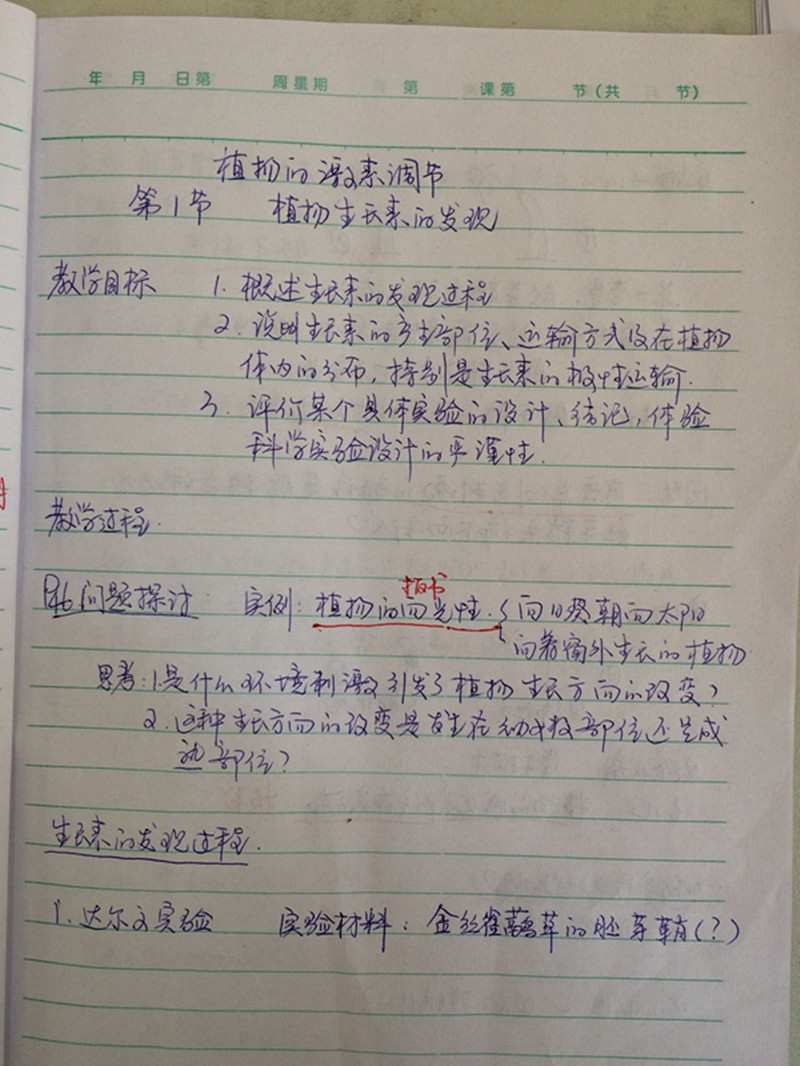 年 月 日第 周星期 第 课第 节(共 节)
植物的激素调节
第1节 植物生长素的发现
教学目标 1. 概述生长素的发现过程
2. 说明生长素的产生部位、运输方式及在植物
体内的分布,特别是生长素的极性运输.
3. 评价某个具体实验的设计、结论,体验
科学实验设计的严谨性.
教学过程.
P46问题探讨 实例: 植物的向光性. 板书 { 向日葵朝向太阳
向着窗外生长的植物
思考:1.是什么环境刺激引发了植物生长方向的改变?
2.这种生长方向的改变是发生在幼嫩部位还是成
熟部位?
生长素的发现过程.
1.达尔文实验 实验材料: 金丝雀虉草的胚芽鞘(?)